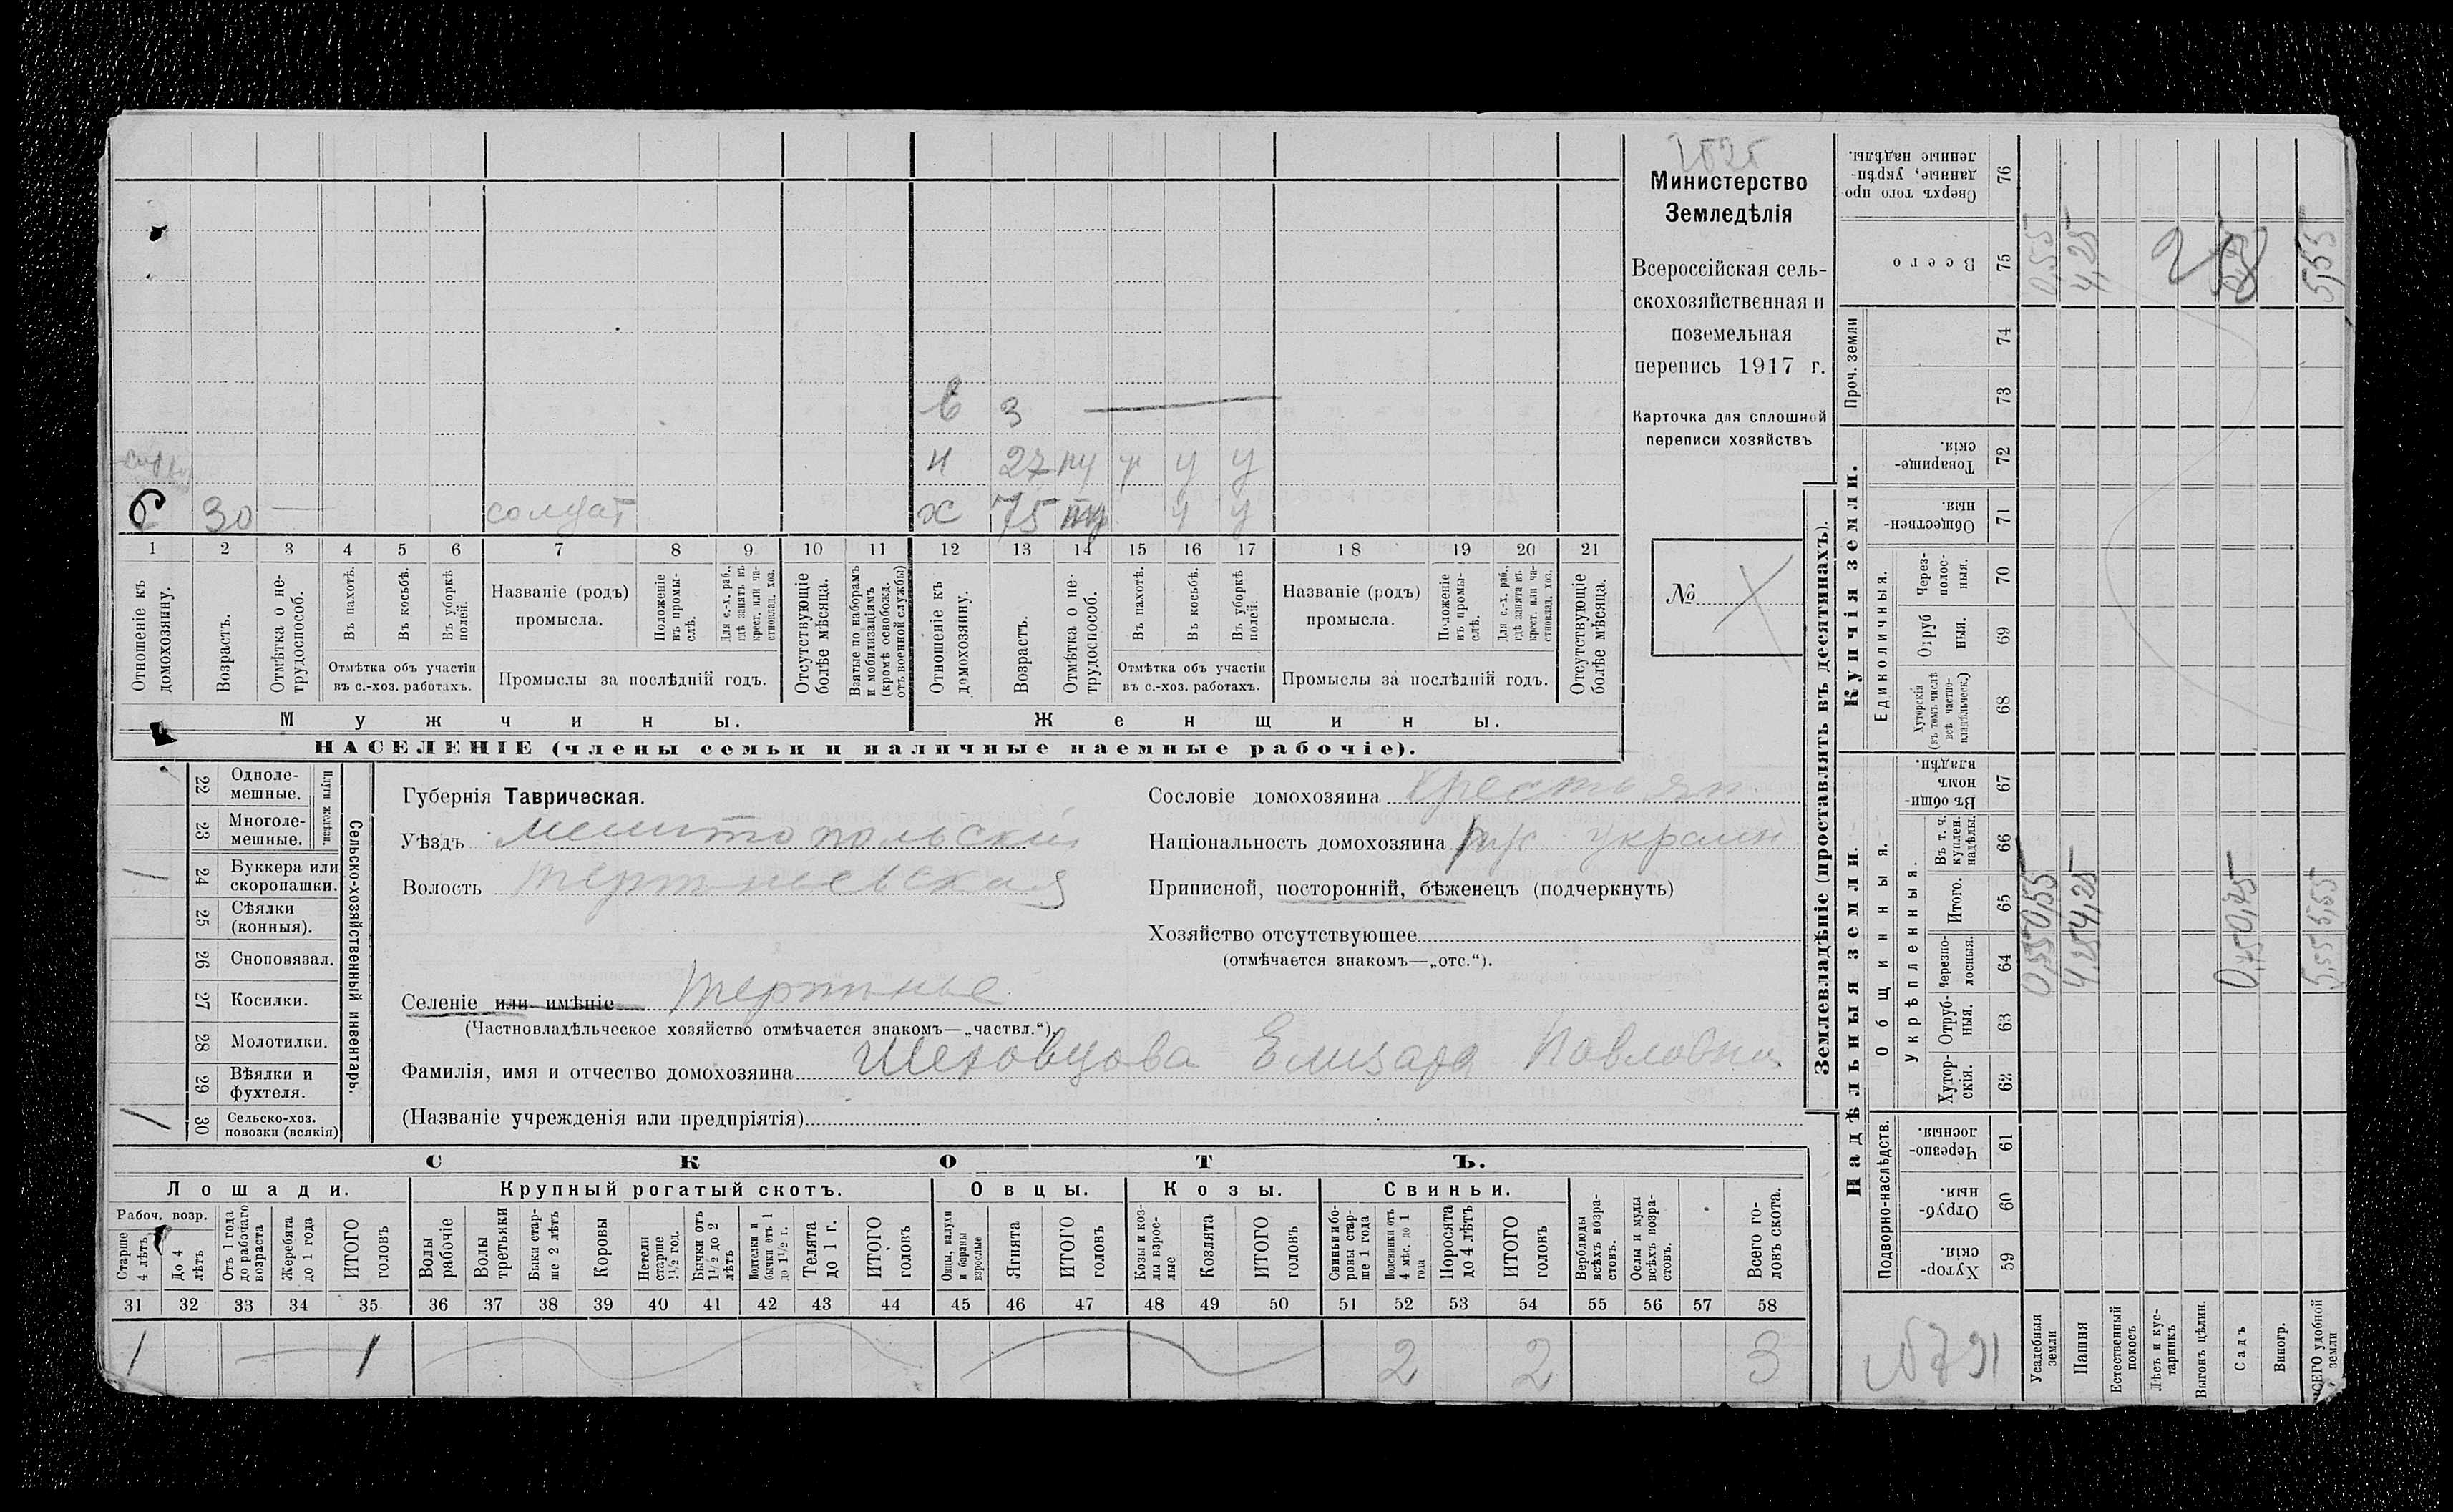 2525
Министерство
Земледѣлія
Всероссійская сель-
скохозяйственная и
поземельная
перепись 1917 г.
Карточка для сплошной
переписи хозяйствъ
№
в 3
н 27 ну у у у
б 30 — солдат
х 75 у у
1 2 3 4 5 6 7 8 9 10 11 12 13 14 15 16 17 18 19 20 21
Отношеніе къ домохозяину.
Возрастъ.
Отмѣтка о не-трудоспособ.
Въ пахотѣ.
Въ косьбѣ.
Въ уборкѣ полей.
Отмѣтка объ участіи
въ с.-хоз. работахъ.
Названіе (родъ)
промысла.
Положеніе въ промы-слѣ.
Для с.-х. раб., гдѣ занятъ въ крест. или ча-стновлад. хоз.
Промыслы за послѣдній годъ.
Отсутствующіе болѣе мѣсяца.
Взятые по наборамъ и мобилизаціямъ (кромѣ освобожд. отъ военной службы)
Отношеніе къ домохозяину.
Возрастъ.
Отмѣтка о не-трудоспособ.
Въ пахотѣ.
Въ косьбѣ.
Въ уборкѣ полей.
Отмѣтка объ участіи
въ с.-хоз. работахъ.
Названіе (родъ)
промысла.
Положеніе въ промы-слѣ.
Для с.-х. раб., гдѣ занята въ крест. или ча-стновлад. хоз.
Промыслы за послѣдній годъ.
Отсутствующіе болѣе мѣсяца.
Мужчины. Женщины.
НАСЕЛЕНІЕ (члены семьи и наличные наемные рабочіе).
22 Одноле-мешные.
23 Многоле-мешные.
Плуги желѣзн.
24 Буккера или скоропашки. 1
25 Сѣялки (конныя).
26 Сноповязал.
27 Косилки.
28 Молотилки.
29 Вѣялки и фухтеля.
30 Сельско-хоз. повозки (всякія) 1
Сельско-хозяйственный инвентарь.
Губернія Таврическая.
Уѣздъ Мелитопольскій
Волость Терпеньевская
Селеніе или имѣніе Терпенье
(Частновладѣльческое хозяйство отмѣчается знакомъ—„частвл.“).
Фамилія, имя и отчество домохозяина Шеховцова Елизара Павловна
(Названіе учрежденія или предпріятія)
Сословіе домохозяина крестьян.
Національность домохозяина украин
Приписной, посторонній, бѣженецъ (подчеркнуть)
Хозяйство отсутствующее
(отмѣчается знакомъ—„отс.“).
СКОТЪ.
Лошади. Крупный рогатый скотъ. Овцы. Козы. Свиньи.
Рабоч. возр.
Старше 4 лѣтъ
До 4 лѣтъ
Отъ 1 года до рабочаго возраста
Жеребята до 1 года
ИТОГО головъ
Волы рабочіе
Волы третьяки
Быки стар-ше 2 лѣтъ
Коровы
Нетели старше 1½ год.
Бычки отъ 1½ до 2 лѣтъ
Подтелки и бычки отъ 1 до 1½ г.
Телята до 1 г.
ИТОГО головъ
Овцы, валухи и бараны взрослые
Ягнята
ИТОГО головъ
Козы и коз-лы взрос-лые
Козлята
ИТОГО головъ
Свиньи и бо-ровы стар-ше 1 года
Подсвинки отъ 4 мѣс. до 1 года
Поросята до 4 лѣтъ
ИТОГО головъ
Верблюды всѣхъ возра-стовъ.
Ослы и мулы всѣхъ возра-стовъ.
Всего го-ловъ скота.
31 32 33 34 35 36 37 38 39 40 41 42 43 44 45 46 47 48 49 50 51 52 53 54 55 56 57 58
1 — 1 2 2 3
Землевладѣніе (проставлять въ десятинахъ).
Надѣльныя земли.
Купчія земли.
Проч. земли
Подворно-наслѣдств.
Общинныя.
Укрѣпленныя.
Единоличныя.
Сверхъ того про-данные, укрѣп-ленные надѣлы. 76
Всего 75
74
73
Товарище-скія. 72
Обществен-ныя. 71
Через-полос-ныя. 70
Отруб ныя. 69
Хуторскія (въ томъ числѣ всѣ частно-владѣльческ.) 68
Въ общи-номъ владѣн. 67
Въ т. ч. куплен. надѣлы. 66
Итого. 65
Черезпо-лосныя. 64
Отруб-ныя. 63
Хутор-скія. 62
Черезпо-лосныя. 61
Отруб-ныя. 60
Хутор-скія. 59
Усадебныя земли
Пашня
Естественный покосъ
Лѣсъ и кус-тарникъ
Выгонъ цѣлин.
Садъ
Виногр.
ВСЕГО удобной земли
0,55 4,25 5,55
0,55 4,25 0,75 5,55
0,55 4,25 0,75 5,55
28
№791